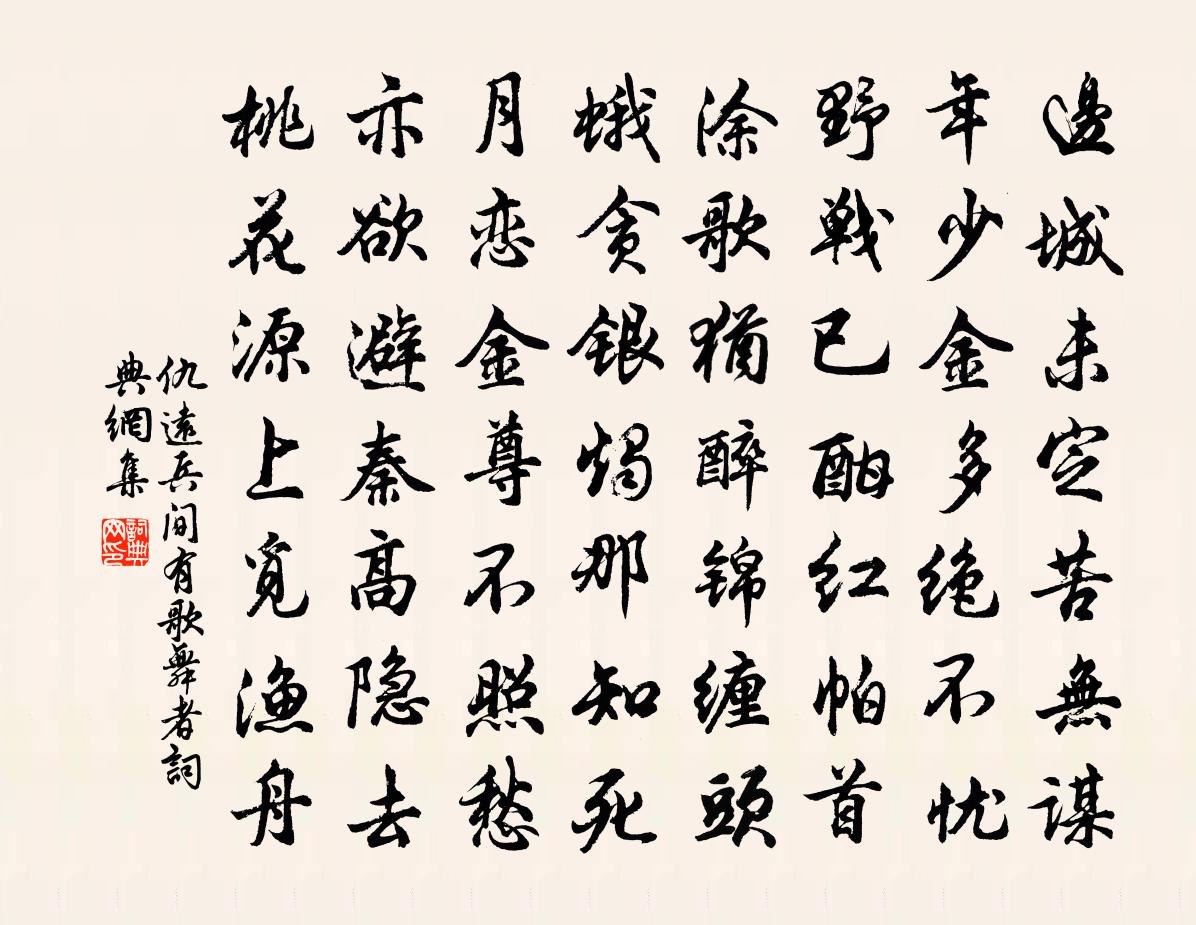 邊城未定苦無謀
年少金多绝不忧
野戰已酣红帕首
涂歌猶醉锦缠頭
蛾贪银燭那知死
月恋金尊不照愁
亦欲避秦高隐去
桃花源上覓渔舟
仇遠兵间有歌舞者詞
典網集
詞典
网印